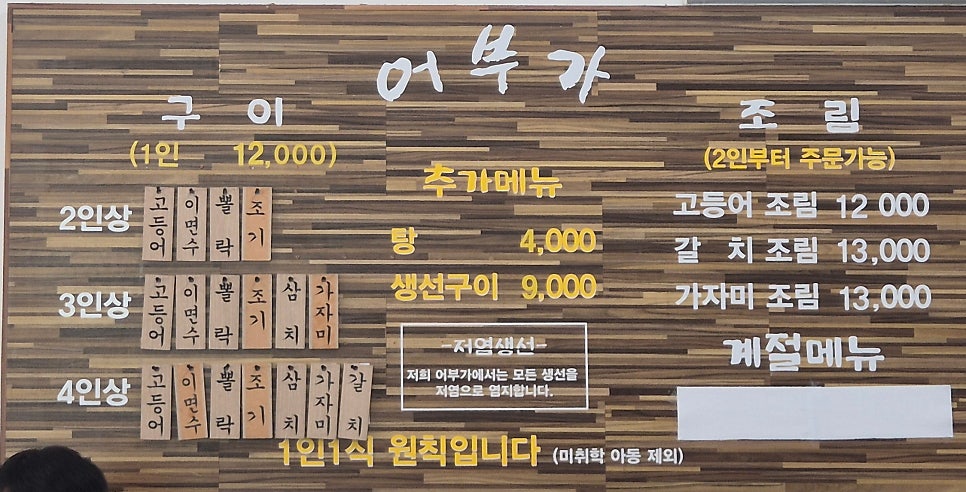 어부가
구이
(1인 12,000)
2인상 고등어 이면수 뽈락 조기
3인상 고등어 이면수 뽈락 조기 삼치 가자미
4인상 고등어 이면수 뽈락 조기 삼치 가자미 갈치
추가메뉴
탕 4,000
생선구이 9,000
-저염생선-
저희 어부가에서는 모든 생선을
저염으로 염지합니다.
조림
(2인부터 주문가능)
고등어 조림 12 000
갈 치 조림 13,000
가자미 조림 13,000
계절메뉴
1인1식 원칙입니다 (미취학 아동 제외)